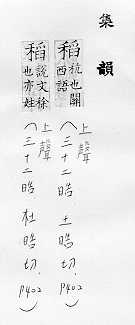 集韻
稻秔也關西語
(上聲 三十二晧 土晧切. P402)
稻說文稌也亦姓
(上聲 三十二晧 杜晧切. P402)